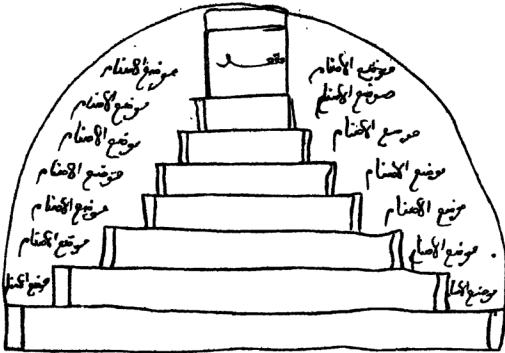 موضع الأصنام
موضع الأصنام
موضع الأصنام
موضع الأصنام
موضع الأصنام
موضع الأصنام
موضع الأصنام
موضع الأصنام
موضع الأصنام
موضع الأصنام
موضع الأصنام
موضع الأصنام
موضع
موضع